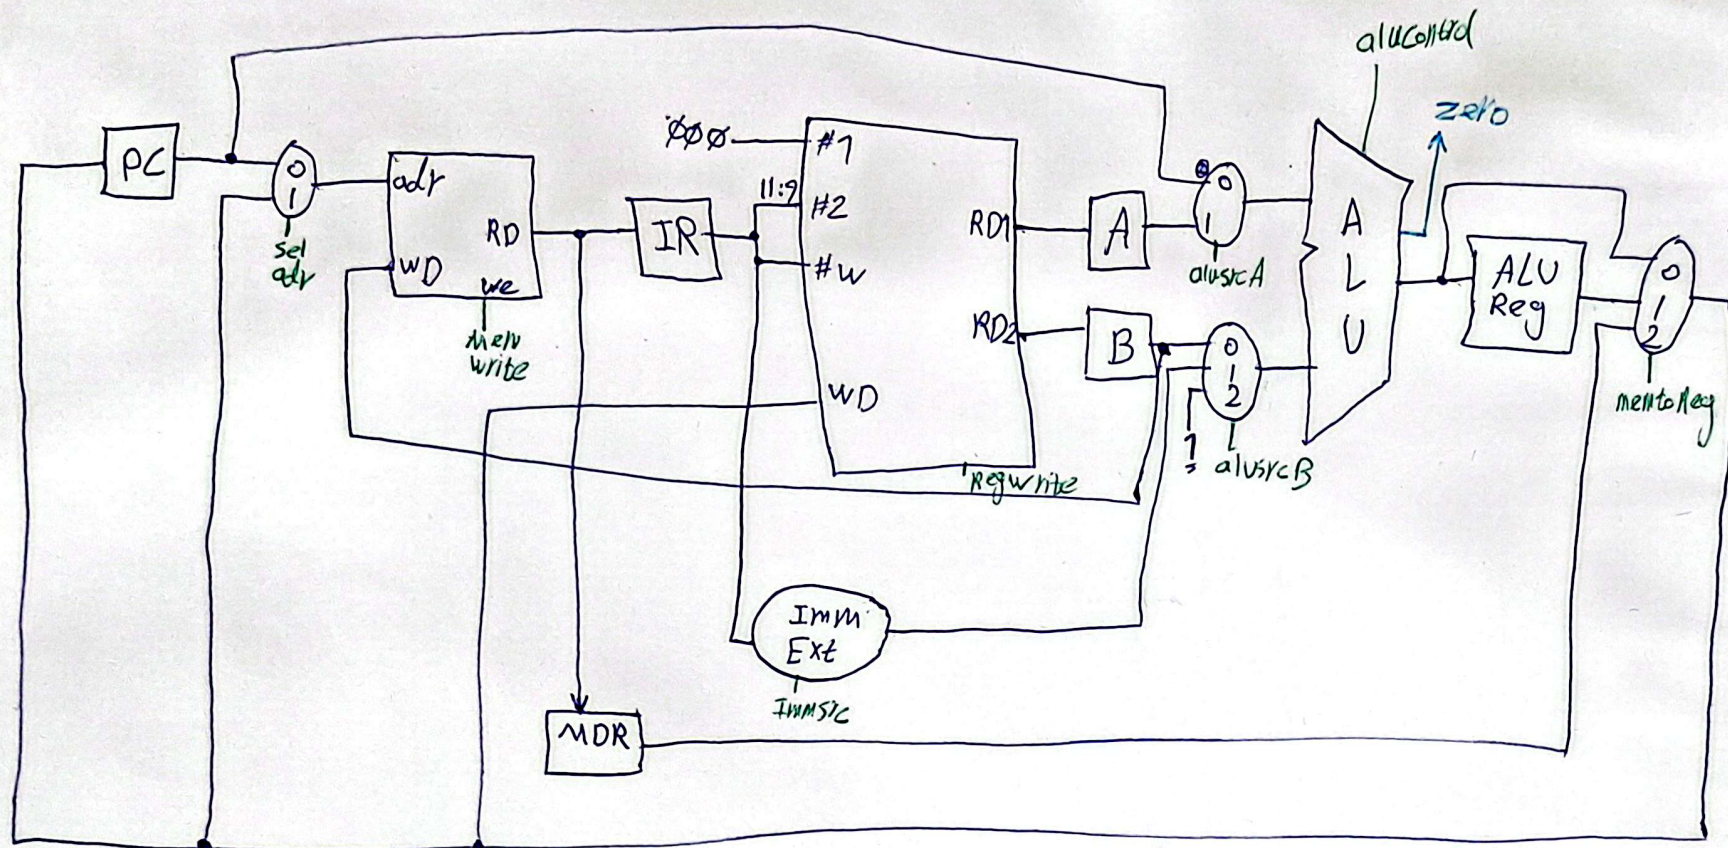 alucontrol
zero
PC
0
1
sel
adr
adr
RD
WD
we
mem
write
IR
000
11:9
#1
#2
#w
RD1
RD2
WD
Regwrite
A
B
0
1
alusrcA
0
1
2
1
alusrcB
A
L
U
ALU
Reg
0
1
2
memtoReg
Imm
Ext
Immsrc
MDR